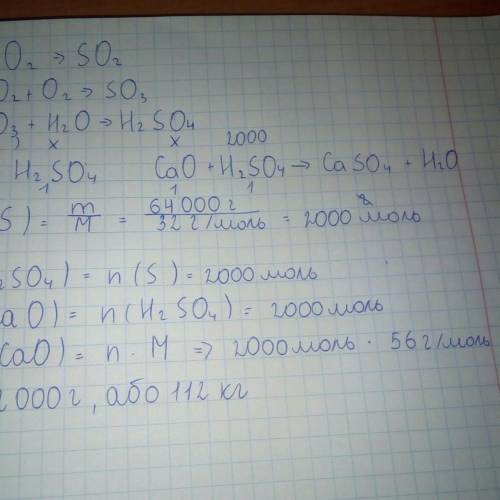 O₂ → SO₂
O₂ + O₂ → SO₃
O₃ + H₂O → H₂SO₄
x x 2000
H₂SO₄ CaO + H₂SO₄ → CaSO₄ + H₂O
1 1 1
S) = m/M = 64000 г/32 г/моль = 2000 моль
₂SO₄) = n(S) = 2000 моль
aO) = n(H₂SO₄) = 2000 моль
CaO) = n · M => 2000 моль · 56 г/моль
2000 г, або 112 кг